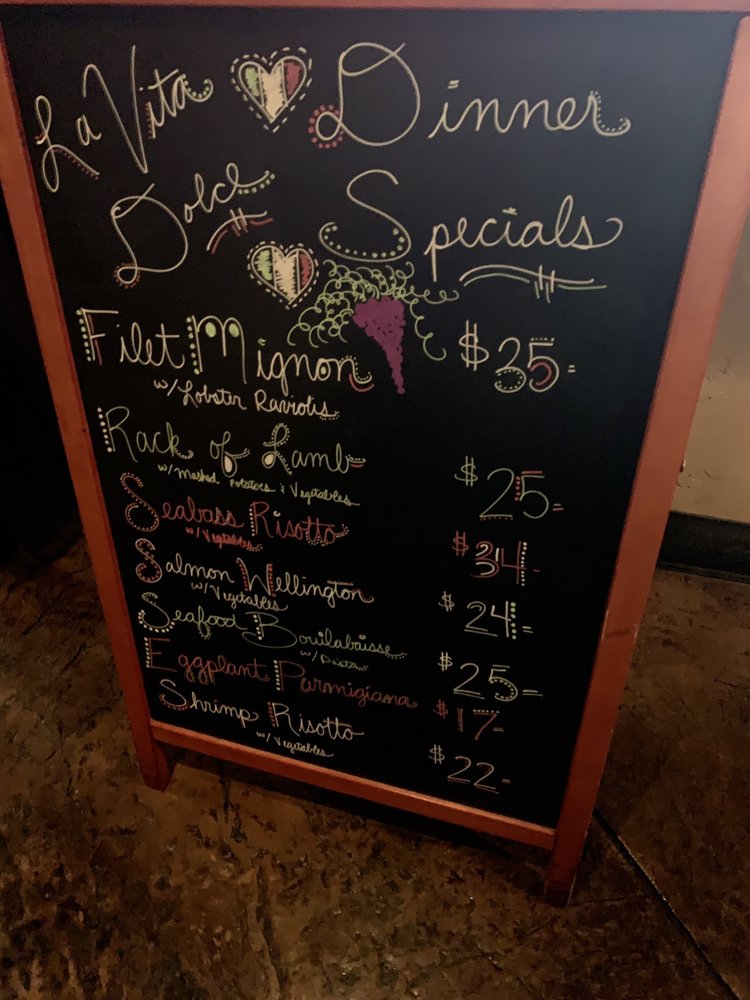 La Vita Dinner
Dolce Specials
Filet Mignon $35-
w/ Lobster Raviolis
Rack of Lamb $25-
w/ Mashed Potatoes & Vegetables
Seabass Risotto $34-
w/ Vegetables
Salmon Wellington $24-
w/ Vegetables
Seafood Bouilabaisse $25-
w/
Eggplant Parmigiana $17-
Shrimp Risotto $22-
w/ Vegetables